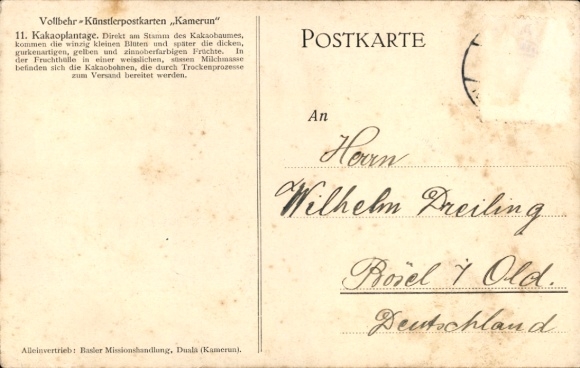 Vollbehr-Künstlerpostkarten „Kamerun"
11. Kakaoplantage. Direkt am Stamm des Kakaobaumes,
kommen die winzig kleinen Blüten und später die dicken,
gurkenartigen, gelben und zinnoberfarbigen Früchte. In
der Fruchthülle in einer weisslichen, süssen Milchmasse
befinden sich die Kakaobohnen, die durch Trockenprozesse
zum Versand bereitet werden.
Alleinvertrieb: Basler Missionshandlung, Duala (Kamerun).
POSTKARTE
An
Herrn
Wilhelm Dreiling
Bösel i/ Old.
Deutschland